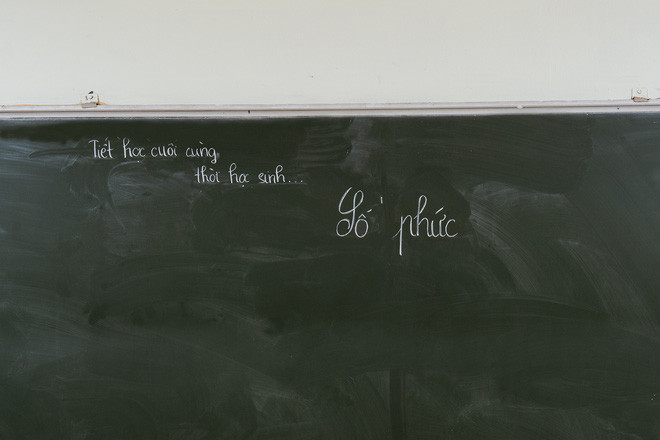 Tiết học cuối cùng,
thời học sinh...
Số phức